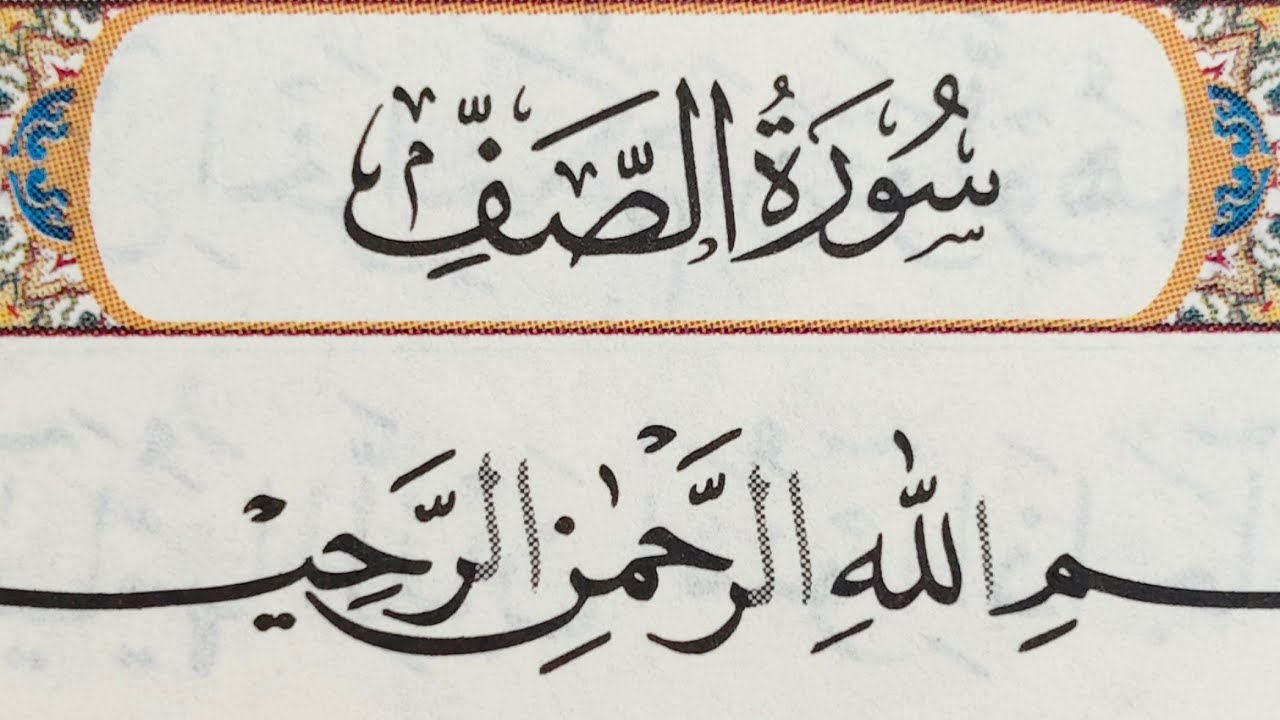 سُورَةُ الصَّفِّ
ـسمِ اللّٰهِ الرَّحْمٰنِ الرَّحِيـ